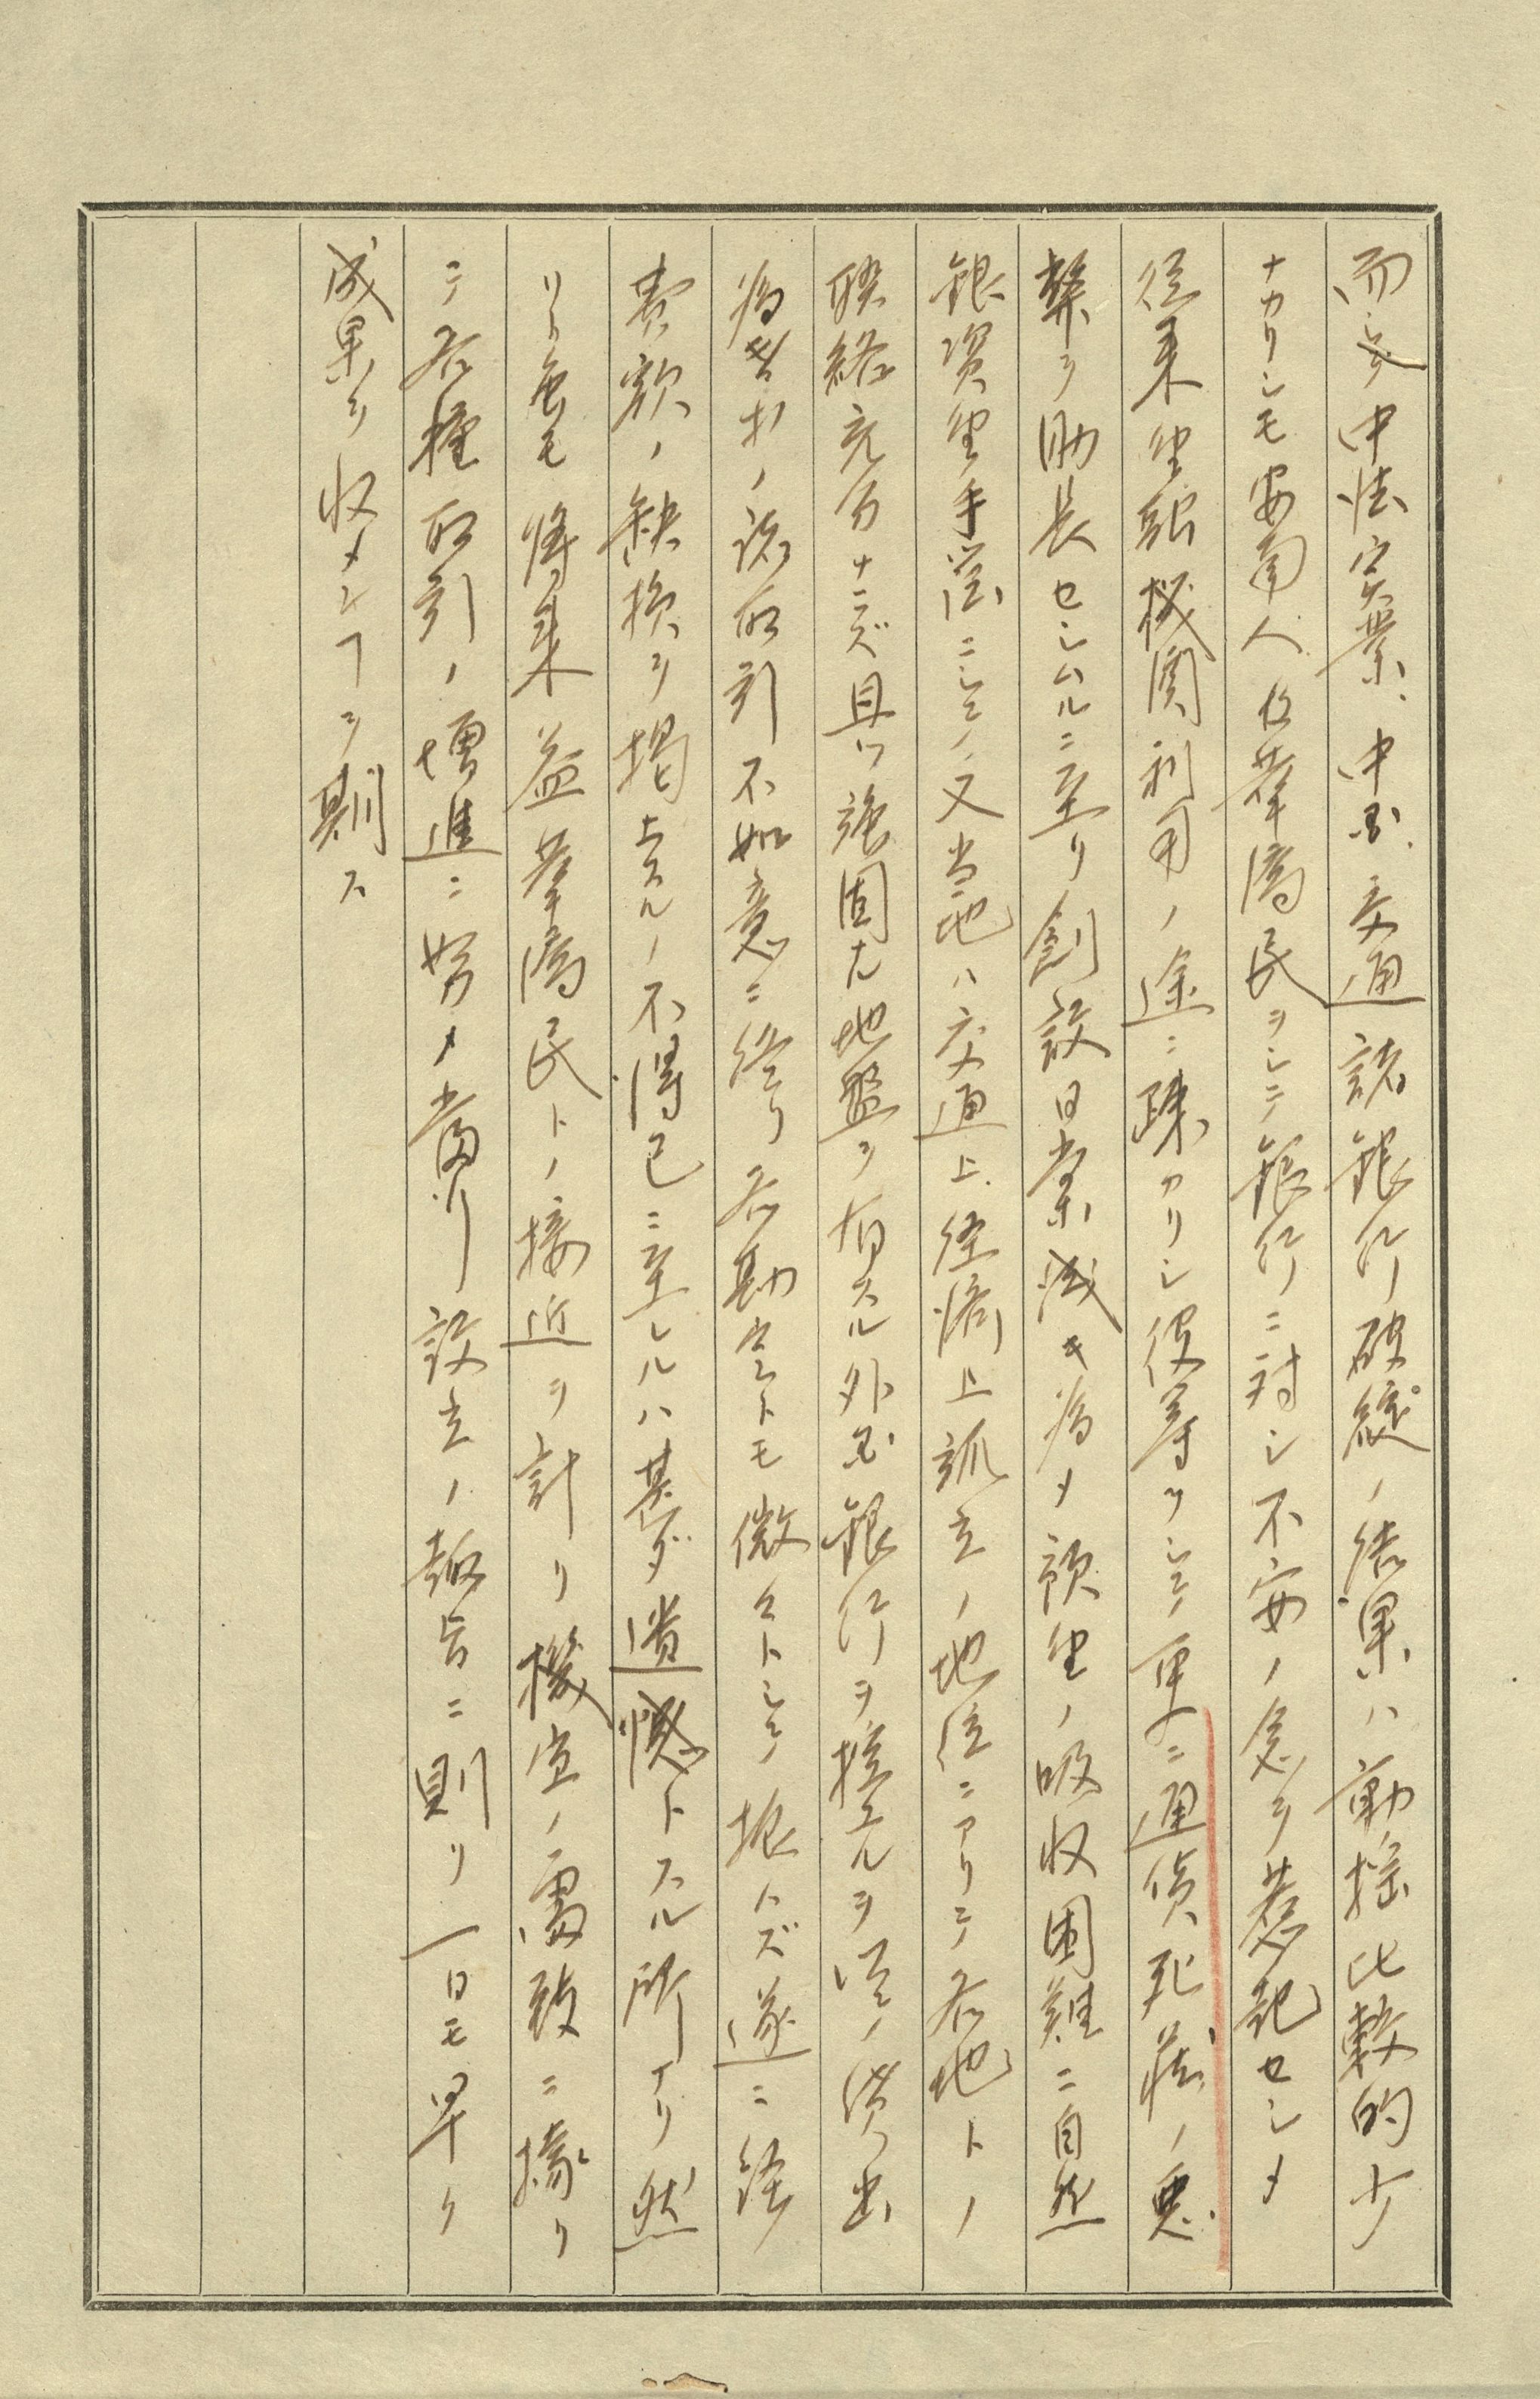 而シテ中法実業、中国、交通諸銀行破綻ノ結果ハ動揺比較的少
ナカリシモ安南人及華僑民ヲシテ銀行ニ対シ不安ノ念ヲ惹起セシメ
従来金融機関利用ノ途ニ疎カリシ彼等ヲシテ更ニ通貨死蔵ノ悪
弊ヲ助長セシムルニ至リ創設日業浅キ為メ預金ノ吸収困難ニ自然
銀資金手当ニシテ又当地ハ交通上、経済上孤立ノ地位ニアリテ各地トノ
聯絡充分ナラズ且ツ強固ナル地盤ヲ有スル外国銀行ヲ控エルヲ以テ貸出
為替等ノ諸取引不如意ニ終リ各勘定トモ微々トシテ振ハズ遂ニ経
費額ノ缺損ヲ掲上スルノ不得已ニ至レルハ甚ダ遺憾トスル所ナリ然
リト虽モ将来益華僑民トノ接近ヲ計リ機宜ノ処致ニ據リ
テ各種取引ノ増進ニ努メ当行設立ノ趣旨ニ則リ一日モ早ク
成果ヲ収メンコヲ期ス